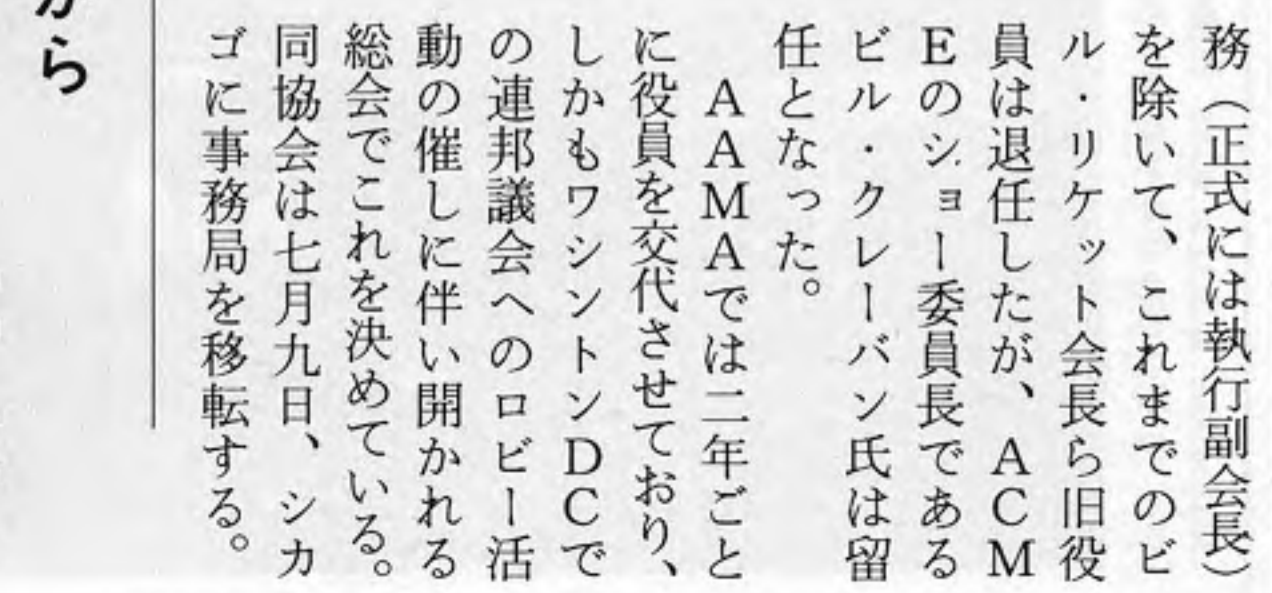 務（正式には執行副会長）
を除いて、これまでのビ
ル・リケット会長ら旧役
員は退任したが、ACM
Eのショー委員長である
ビル・クレーバン氏は留
任となった。
　AAMAでは二年ごと
に役員を交代させており、
しかもワシントンDCで
の連邦議会へのロビー活
動の催しに伴い開かれる
総会でこれを決めている。
同協会は七月九日、シカ
ゴに事務局を移転する。
から